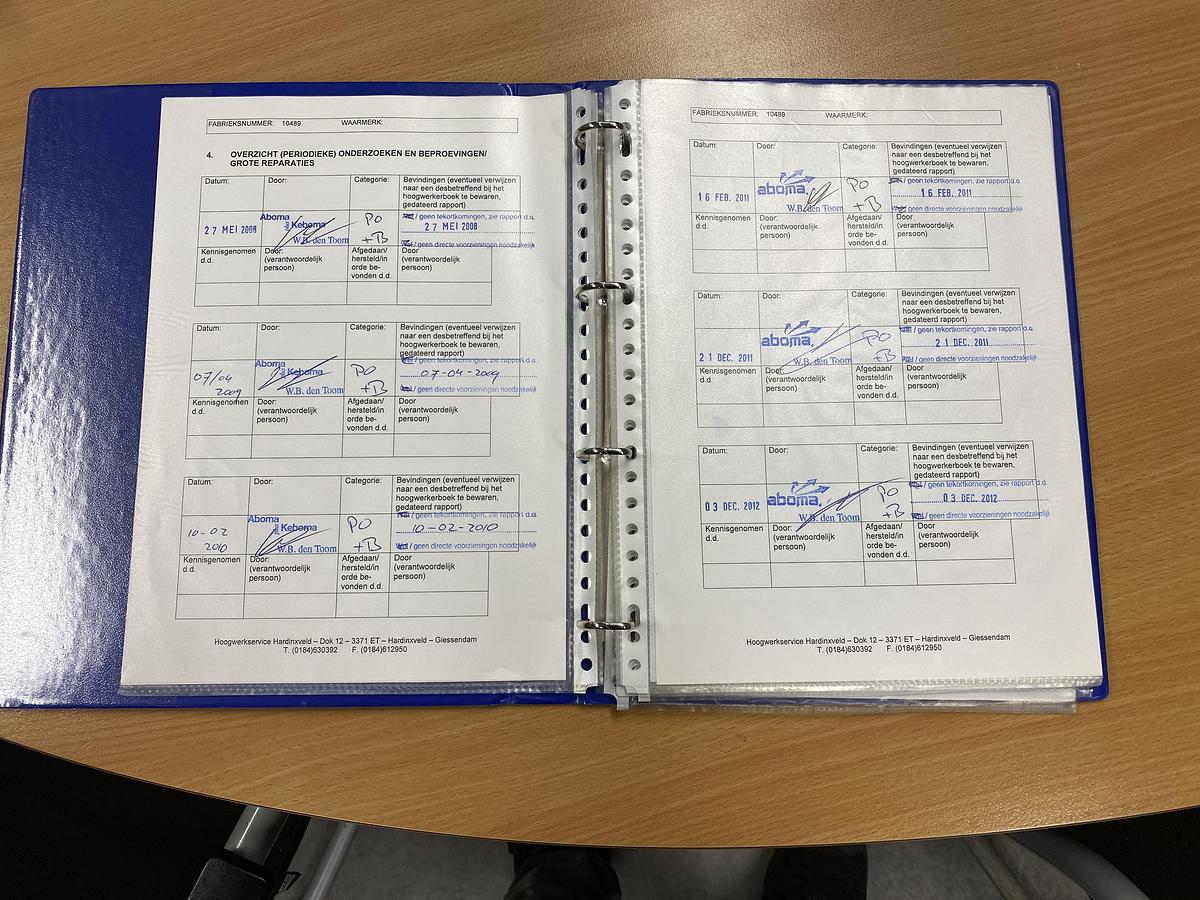 FABRIEKSNUMMER: 10489 WAARMERK:
4. OVERZICHT (PERIODIEKE) ONDERZOEKEN EN BEPROEVINGEN/
GROTE REPARATIES
Datum: Door: Categorie: Bevindingen (eventueel verwijzen
naar een desbetreffend bij het
hoogwerkerboek te bewaren,
gedateerd rapport)
/ geen tekortkomingen, zie rapport d.d.
27 MEI 2008 Aboma Keboma W.B. den Toom PO +B 27 MEI 2008
/ geen directe voorzieningen noodzakelijk
Kennisgenomen Door: Afgedaan/ Door
d.d. (verantwoordelijk hersteld/in (verantwoordelijk
persoon) orde be- persoon)
vonden d.d.
Datum: Door: Categorie: Bevindingen (eventueel verwijzen
naar een desbetreffend bij het
hoogwerkerboek te bewaren,
gedateerd rapport)
/ geen tekortkomingen, zie rapport d.d.
07/04 2009 Aboma Keboma W.B. den Toom PO +B 07-04-2009
/ geen directe voorzieningen noodzakelijk
Kennisgenomen Door: Afgedaan/ Door
d.d. (verantwoordelijk hersteld/in (verantwoordelijk
persoon) orde be- persoon)
vonden d.d.
Datum: Door: Categorie: Bevindingen (eventueel verwijzen
naar een desbetreffend bij het
hoogwerkerboek te bewaren,
gedateerd rapport)
/ geen tekortkomingen, zie rapport d.d.
10-02 2010 Aboma Keboma W.B. den Toom PO +B 10-02-2010
/ geen directe voorzieningen noodzakelijk
Kennisgenomen Door: Afgedaan/ Door
d.d. (verantwoordelijk hersteld/in (verantwoordelijk
persoon) orde be- persoon)
vonden d.d.
Hoogwerkservice Hardinxveld – Dok 12 – 3371 ET – Hardinxveld – Giessendam
T. (0184)630392 F. (0184)612950
FABRIEKSNUMMER: 10489 WAARMERK:
Datum: Door: Categorie: Bevindingen (eventueel verwijzen
naar een desbetreffend bij het
hoogwerkerboek te bewaren,
gedateerd rapport)
/ geen tekortkomingen, zie rapport d.d.
16 FEB. 2011 aboma. W.B. den Toom PO +B 16 FEB. 2011
/ geen directe voorzieningen noodzakelijk
Kennisgenomen Door: Afgedaan/ Door
d.d. (verantwoordelijk hersteld/in (verantwoordelijk
persoon) orde be- persoon)
vonden d.d.
Datum: Door: Categorie: Bevindingen (eventueel verwijzen
naar een desbetreffend bij het
hoogwerkerboek te bewaren,
gedateerd rapport)
/ geen tekortkomingen, zie rapport d.d.
21 DEC. 2011 aboma. W.B. den Toom PO +B 21 DEC. 2011
/ geen directe voorzieningen noodzakelijk
Kennisgenomen Door: Afgedaan/ Door
d.d. (verantwoordelijk hersteld/in (verantwoordelijk
persoon) orde be- persoon)
vonden d.d.
Datum: Door: Categorie: Bevindingen (eventueel verwijzen
naar een desbetreffend bij het
hoogwerkerboek te bewaren,
gedateerd rapport)
/ geen tekortkomingen, zie rapport d.d.
03 DEC. 2012 aboma. W.B. den Toom PO +B 03 DEC. 2012
/ geen directe voorzieningen noodzakelijk
Kennisgenomen Door: Afgedaan/ Door
d.d. (verantwoordelijk hersteld/in (verantwoordelijk
persoon) orde be- persoon)
vonden d.d.
Hoogwerkservice Hardinxveld – Dok 12 – 3371 ET – Hardinxveld – Giessendam
T. (0184)630392 F. (0184)612950